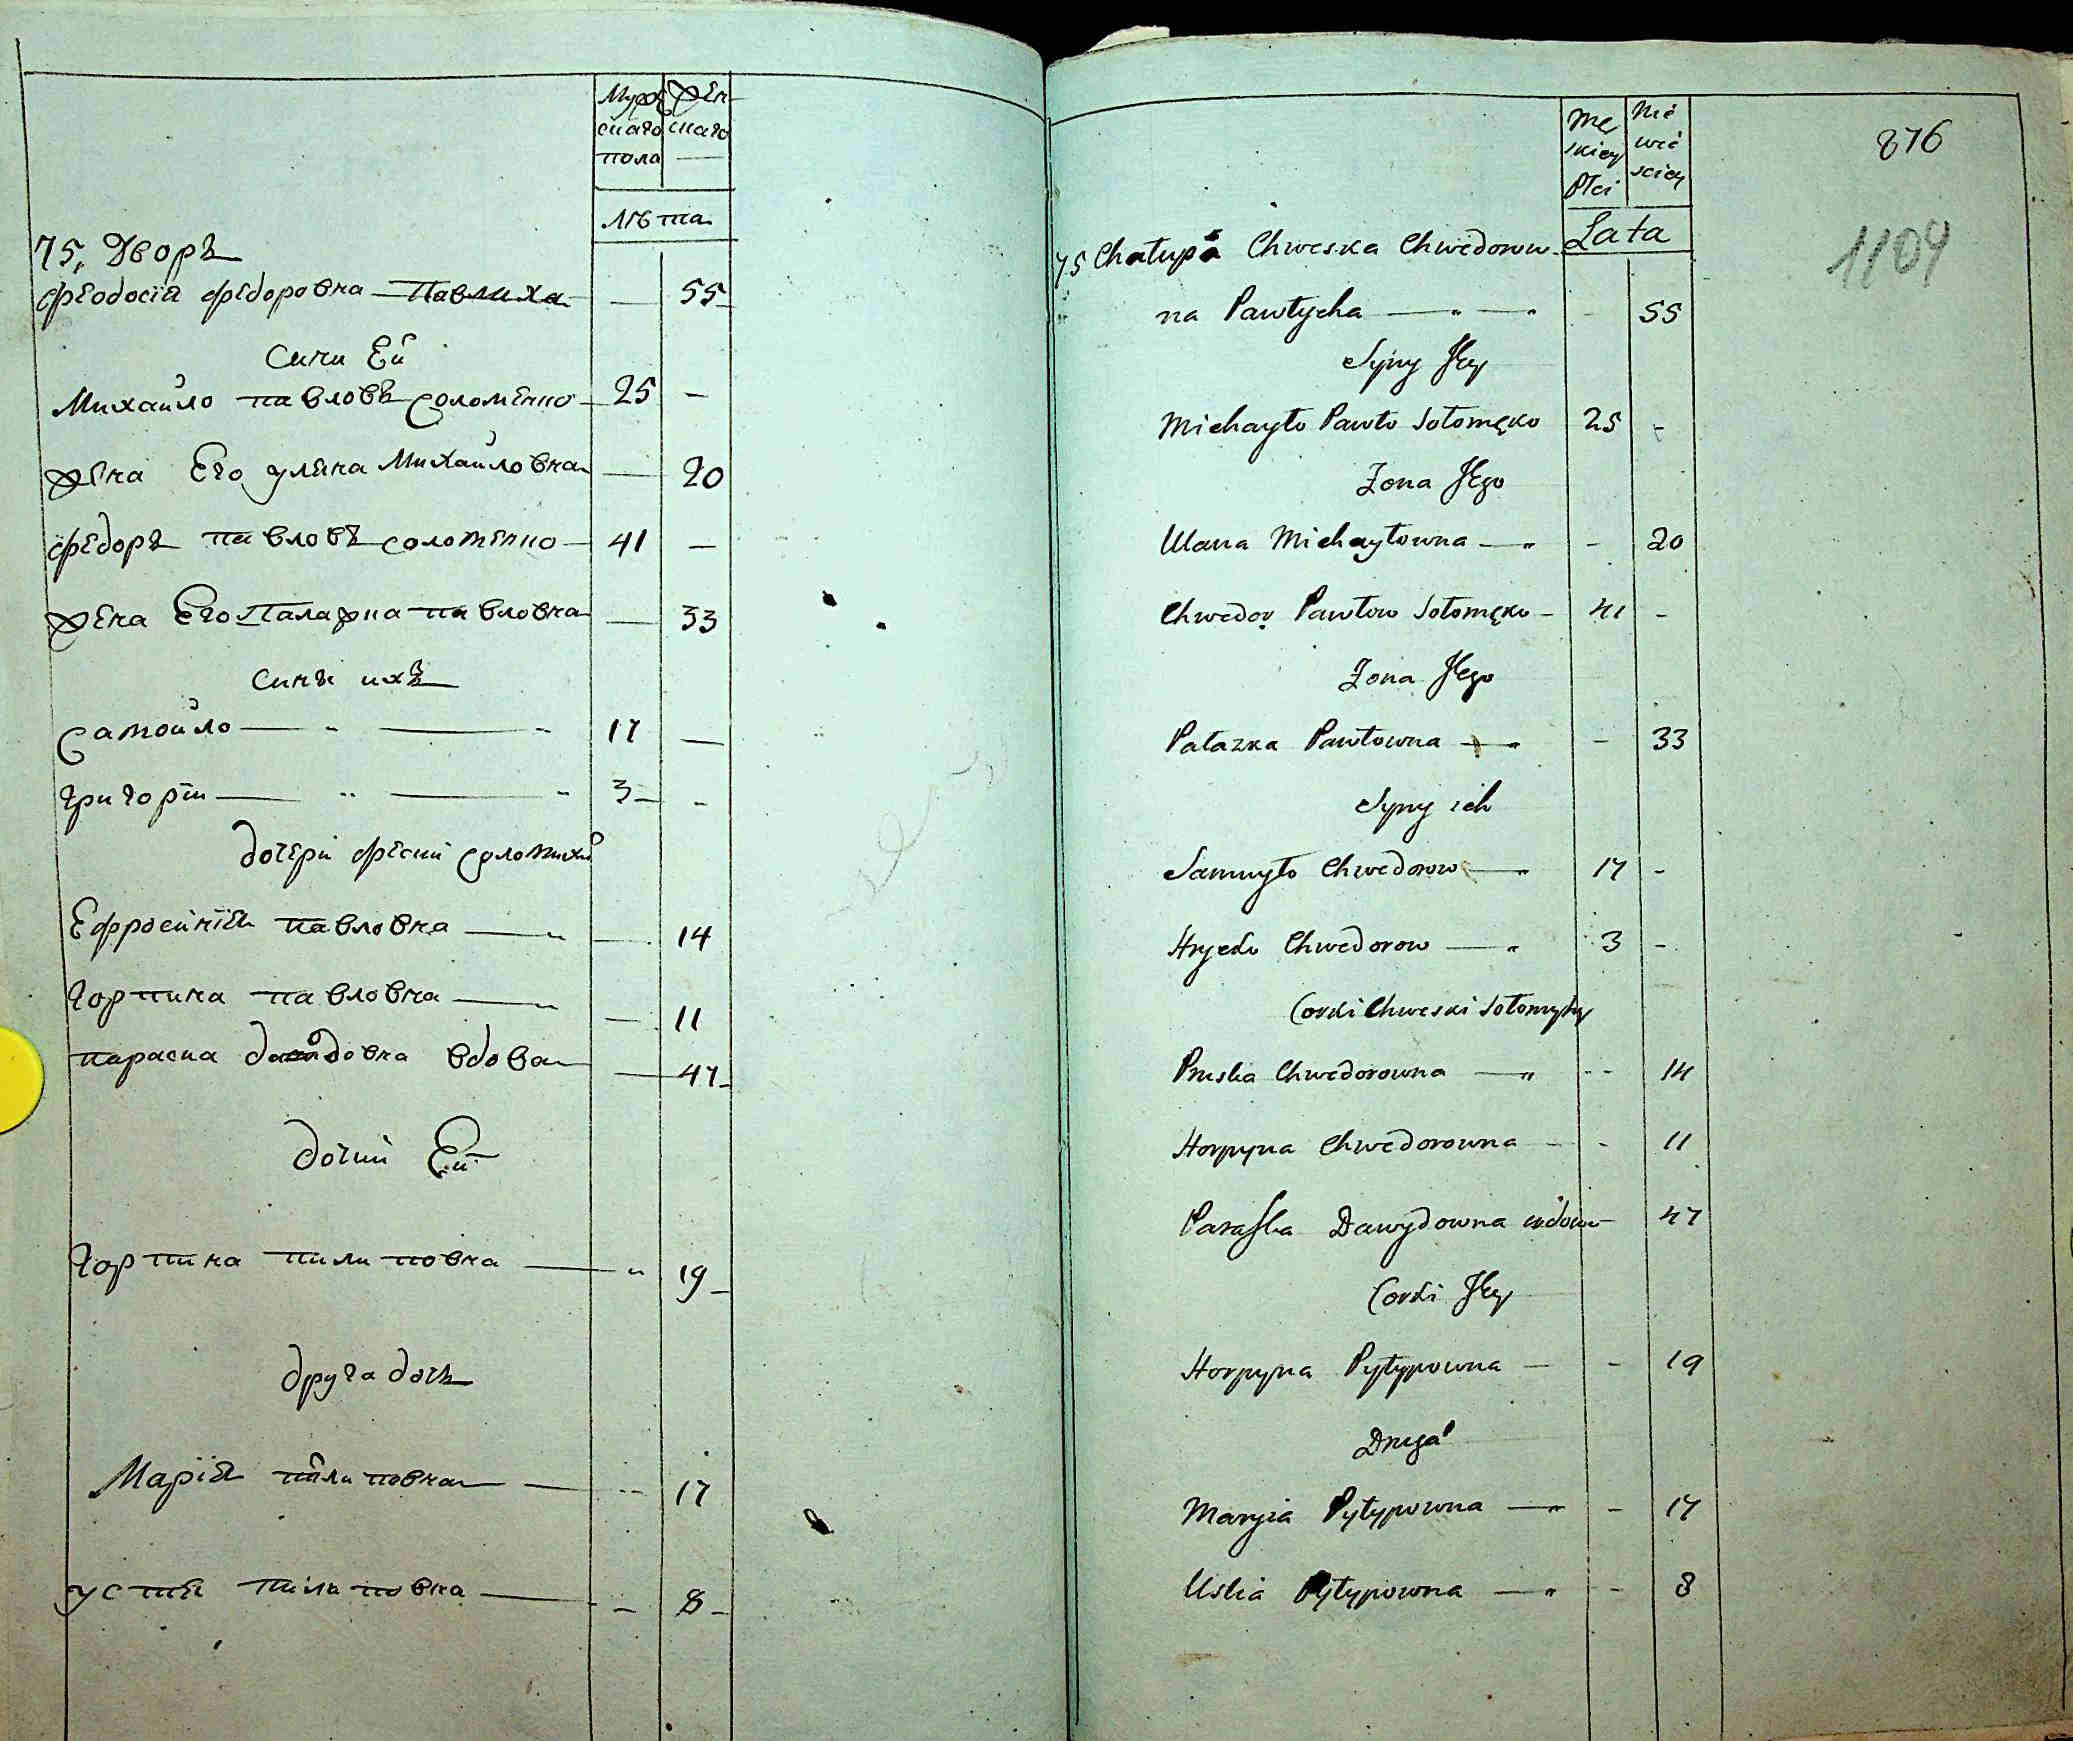 Мужескаго пола Женскаго
Лѣта
75, Дворъ
Феодосіа Федоровна Павлиха — 55
Сини Ей
Михайло павловъ Соломенко 25 —
Жена Его улена Михайловна — 20
Федоръ павловъ соломенко 41 —
Жена Его Палажка павловна — 33
Сини ихъ
Самойло — " — " 17 —
григорій — " — " 3 —
дочери Фески Соломихи
Ефросинія павловна — " — 14
горпина павловна — " — 11
параска давидовна вдова — 47
дочки Ей
горпина пилиповна — " 19
друга дочь
Марія пилиповна — " 17
устия пилиповна — — 8
876
1104
Męskiey Płci Niewieściey
Lata
75 Chałupa Chweska Chwedorow-
na Pawłycha — " — " - 55
Syny Jey
Michayło Pawło Sołomęko 25 -
Zona Jego
Ulana Michayłowna — " - 20
Chwedor Pawłow Sołomęko - 41 -
Zona Jego
Pałazka Pawłowna — " - 33
Syny ich
Samuyło Chwedorow — " 17 -
Hryćko Chwedorow — " 3 -
Corki Chweski Sołomychy
Pruska Chwedorowna — " - - 14
Horpyna Chwedorowna - - 11
Paraska Dawydowna wdowa - 47
Corki Jey
Horpyna Pyłypowna - - 19
Druga
Maryia Pyłypowna — " - 17
Uslia Pyłypowna — " - 8